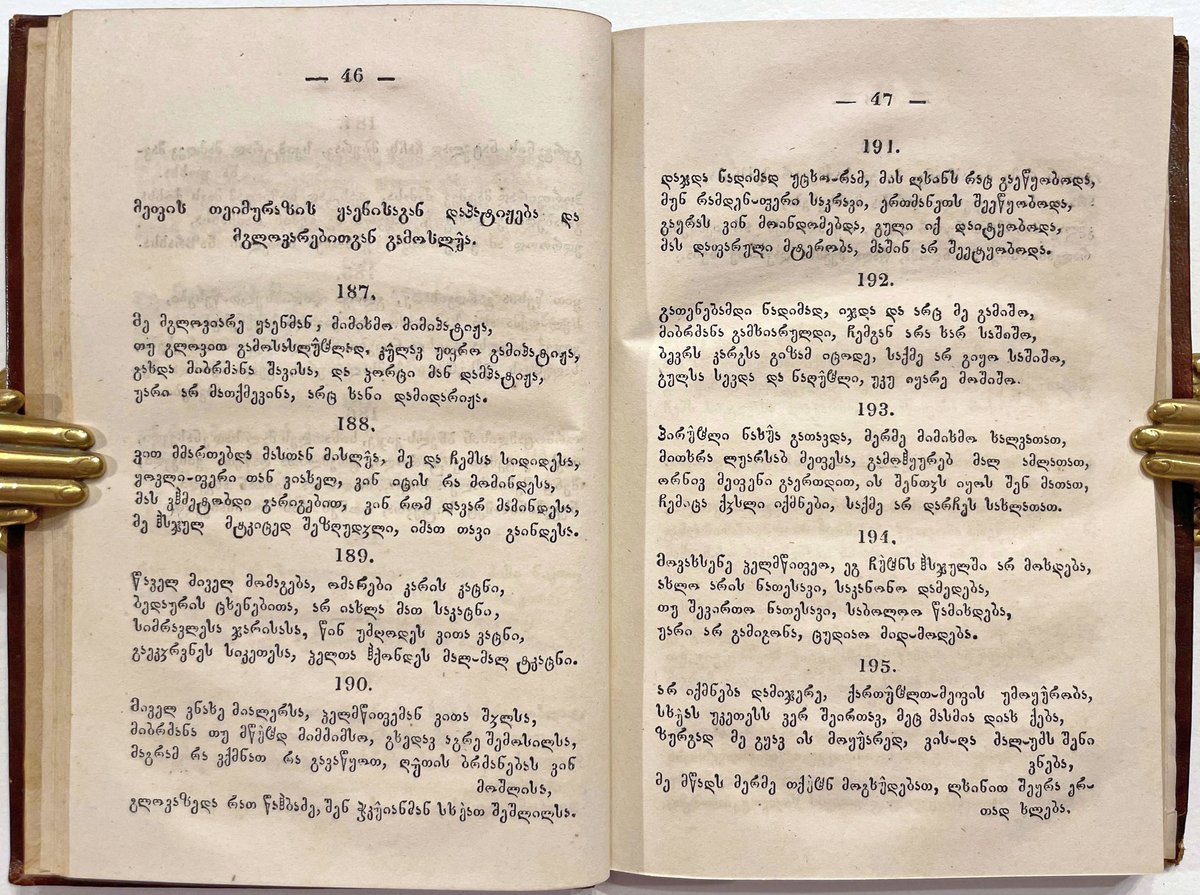 — 46 —
მეფის თეიმურაზის ყაენისაგან დაპატიჟება და
მგლოვარებითგან გამოსლჳა.
187.
მე მგლოვიარე ყაენმან, მიმიხმო მიმიპატიჟა,
თუ გლოვით გამოსასლჳლად, კულავ უფრო გამიპატიჟა,
გახდა მიბრმანა შავისა, და ჴორცი მან დამპატიჟა,
უარი არ მათქმევინა, არც ხანი დამიდარიჟა.
188.
ვით მმართებდა მასთან მისლჳა, მე და ჩემსა სიდიდესა,
ყოვლი-ფერი თან ვიახელ, ვინ იცის რა მომინდესა,
მას ვჰმეტობდი გარიგებით, ვინ რომ დავარ მამინდესა,
მე ჰსჯულ მტკიცედ შეზღუდჳლი, იმათ თავი გაინდესა.
189.
წაველ მიველ მომაგება, ომანები კარის კაცნი,
ბედაურის ცხენებითა, არ იახლა მათ საკაცნი,
სიმრავლესა ჯარისასა, წინ უმღოდეს ვითა ვაცნი,
გაეკჳრვნეს სიკეთესა, ჴელთა ჰქონდეს მალ-მალ ტკაცნი.
190.
მიველ ვნახე მიალერსა, ჴელმწიფემან ვითა შჳლსა,
მიბრმანა თუ მწუჱდ მიმმიმსო, გხედავ აგრე შემოსილსა,
მაგრამ რა ვქმნათ რა გავაწყოთ, ღუთის ბრმანებას ვინ
მოშლისა,
გლოვაზედა რათ წაჰბამე, შენ ჭკუიანმან სხუათ შეშლილსა.
— 47 —
191.
დაჯდა ნადიმად უცხო-რამ, მას ლხინს რაც გაეწყობოდა,
მუნ რამდენ-ფერი საკრავი, ერთმანეთს შეეწყობოდა,
გაყრას ვინ მოინდომებდა, გული იქ დაიტყობოდა,
მას დაფარული მტერობა, მაშინ არ შეეტყობოდა.
192.
გათენებამდი ნადიმად, იჯდა და არც მე გამიშო,
მიბრმანა გამხიარულდი, ჩემგან არა ხარ საშიშო,
ბევრს კარგსა გიზამ იცოდე, საქმე არ გიყო საშიშო,
გულსა სევდა და ნაღუჱლი, უკუ იყარე მოშიშო.
193.
პირუჱლი ნახუა გათავდა, მერმე მიმიხმო ხალვათათ,
მითხრა ლუარსაბ მეფესა, გამოჰყურებ მალ ამლათათ,
ორნივ მეფენი გაერთდით, ის შენთჳს იყოს შენ მათათ,
ჩემიცა ქჳსლი იქმნები, საქმე არ დარჩეს სახლათათ.
194.
მოვახსენე ჴელმწიფეო, ეგ ჩუჱნს ჰსჯულში არ მოხდება,
ახლო არის ნათესავი, საკანონო დამედება,
თუ შევირთო ნათესავი, საბოლოო წამიხდება,
უარი არ გამიგონა, ცუდიაო მიდ-მოდება.
195.
არ იქმნება დამიჯერე, ქართუჱლთ-მეფის უმოყურობა,
სხუას უკეთესს ვერ შეირთავ, მეც მასმია დიახ ქება,
ზურგად მე გყავ ის მოყუარედ, ვის-ღა ძალ-უმს შენი
ვნება,
მე მწადს მერმე თქუჱნ მოგხუდებათ, ლხინით შეყრა ერ-
თად ხლება.